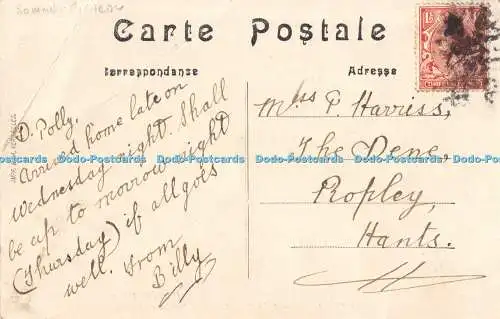 Carte Postale
Correspondanse
Adresse
D. Polly,
Arrived home late on
Wednesday night. Shall
be up to morrow night
(Thursday) if all goes
well. From
Billy
Miss P. Harriss,
The Dene,
Ropley,
Hants.
Dodo-Postcards Dodo-Postcards Dodo-Postcards Dodo-Postcards Dodo-Postcards